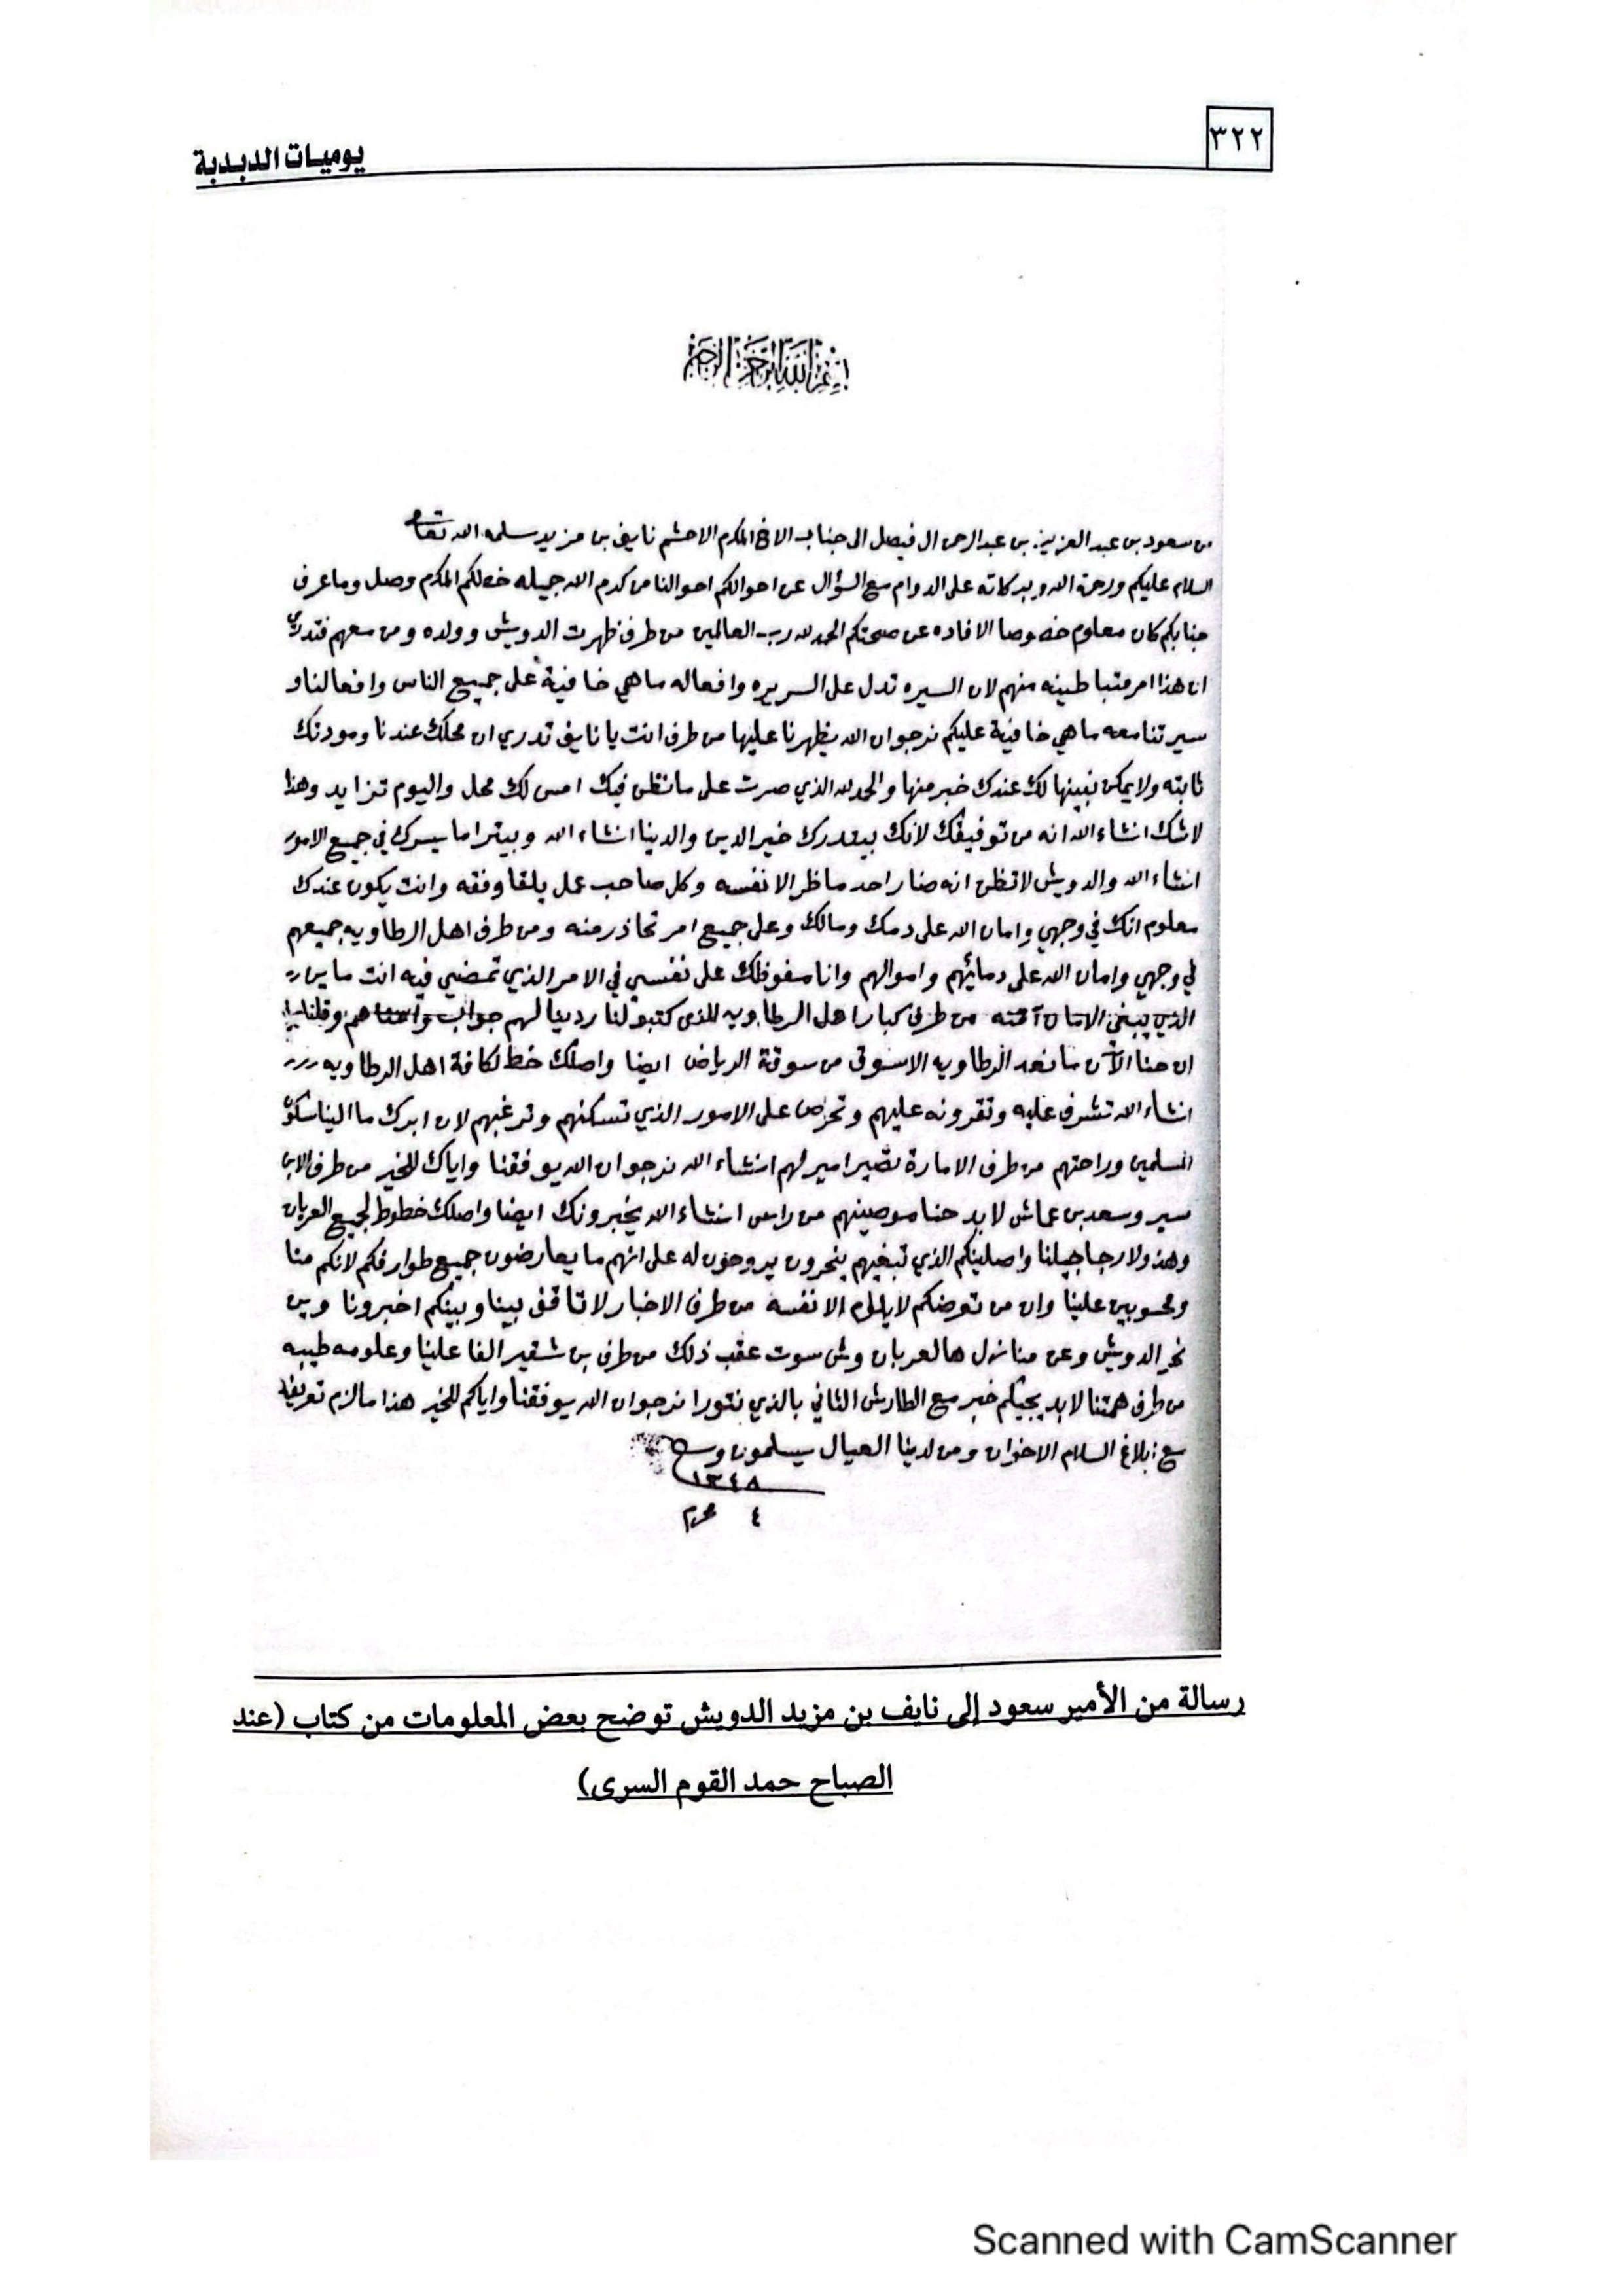 ٣٢٢
يوميات الدبدبة
بسم الله الرحمن الرحيم
من سعود بن عبد العزيز بن عبد الرحمن ال فيصل الى جناب الاخ المكرم الاحشم نايف بن مزيد سلمه الله تعالى
السلام عليكم ورحمة الله وبركاته على الدوام مع السؤال عن احوالكم احوالنا من كرم الله جميله خطكم المكرم وصل وما عرف
جنابكم كان معلوم خصوصا الافاده عن صحتكم الحمد لله رب العالمين من طرف ظهرت الدويش وولده ومن معهم فتدري
ان هذا امر متباطينه منهم لان السيره تدل على السريره وافعاله ما هي خافية على جميع الناس وافعالنا و
سيرتنا معه ما هي خافية عليكم نرجو ان الله يظهرنا عليها من طرف انت يا نايف تدري ان محلك عندنا ومودتك
ثابته ولا يمكن نبينها لك عندك خبر منها والحمد لله الذي صرت على ما نظن فيك امس لك محل واليوم تزايد وهذا
لا شك انشاء الله انه من توفيقك لانك بيتدرك خير الدين والدينا انشاء الله وبيترا ما يسرك في جميع الامور
انشاء الله والدويش لا تظن انه ضار احد ما ظر الا نفسه وكل صاحب عمل يلقا وفقه وانت يكون عندك
معلوم انك في وجهي وامان الله على دمك ومالك وعلى جميع امر تحاذر منه ومن طرف اهل الرطاويه جميعهم
في وجهي وامان الله على دمائهم واموالهم وانا مفوظك على نفسي في الامر الذي تمضي فيه انت
الذي من طرف كبار اهل الرطاويه للذى كتبو لنا ردينا لهم جواب وقلنا
ان حنا الآن ما نعد الرطاويه الا سوق من سوقة الرياض ايضا واصلك خط لكافة اهل الرطاويه
انشاء الله تشرف عليه وتقرونه عليهم وتحرص على الامور الذي تسكنهم وترغبهم لان ابرك ما الينا سكون
المسلمين وراحتهم من طرف الامارة تصير امير لهم انشاء الله نرجو ان الله يوفقنا واياك للخير من طرف الابن
سير وسعد بن عماش لا بد حنا موصينهم من راس انشاء الله يخبرونك ايضا واصلك خطوط لجميع العربان
وهذولا رجاجيلنا واصلينكم الذي تبغيهم ينحرون يروحون له على انهم ما يعارضون جميع طوارفكم لانكم منا
ومحسوبين علينا وان من تعرضكم لا يلوم الا نفسه من طرف الاخبار لا تاقف بينا وبينكم اخبرونا وين
نحر الدويش وعن منازل هالعربان وش سوت عقب ذلك من طرف بن شقير الفا علينا وعلومه طيبه
من طرف همتنا لا بد يجيكم خبر مع الطارش الثاني بالذي نتورا نرجو ان الله يوفقنا واياكم للخير هذا ما لزم تعريفه
مع ابلاغ السلام الاخوان ومن لدينا العيال يسلمون و
١٣٤٨
٤ محرم
رسالة من الأمير سعود إلى نايف بن مزيد الدويش توضح بعض المعلومات من كتاب (عند
الصباح حمد القوم السرى)
Scanned with CamScanner